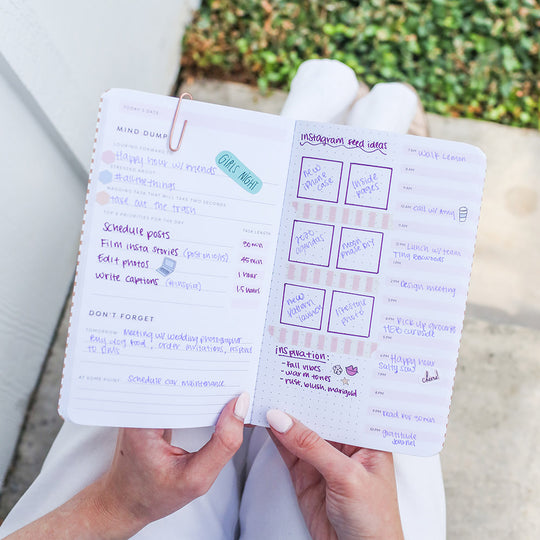 TODAY'S DATE
MIND DUMP
LOOKING FORWARD
Happy hour w/ friends
GIRLS NIGHT
STRESSED ABOUT
#allthethings
NAGGING TASK THAT WILL TAKE TWO SECONDS
take out the trash
TOP 4 PRIORITIES FOR THE DAY
TASK LENGTH
Schedule posts 30 min
Film insta stories 45 min
Edit photos 1 hour
Write captions 1.5 hours
DON'T FORGET
TOMORROW Meeting w/ wedding photographer
Buy dog food, order invitations, respond
to DMs
AT SOME POINT Schedule car maintenance
Instagram feed ideas
new iphone case
inside pages
2020 agendas
moon phase DIY
new pattern launch
lifestyle photo
inspiration:
- Fall vibes
- warm tones
- rust, blush, marigold
7 AM Walk Lemon
8 AM
9 AM
10 AM
11 AM
12 PM Lunch w/ team
Tiny Boxwoods
1 PM
2 PM Design meeting
3 PM
4 PM Pick up groceries
HEB curbside
5 PM
6 PM Happy hour
Salty Sow
7 PM
8 PM
9 PM read for 30 min
10 PM gratitude
journal